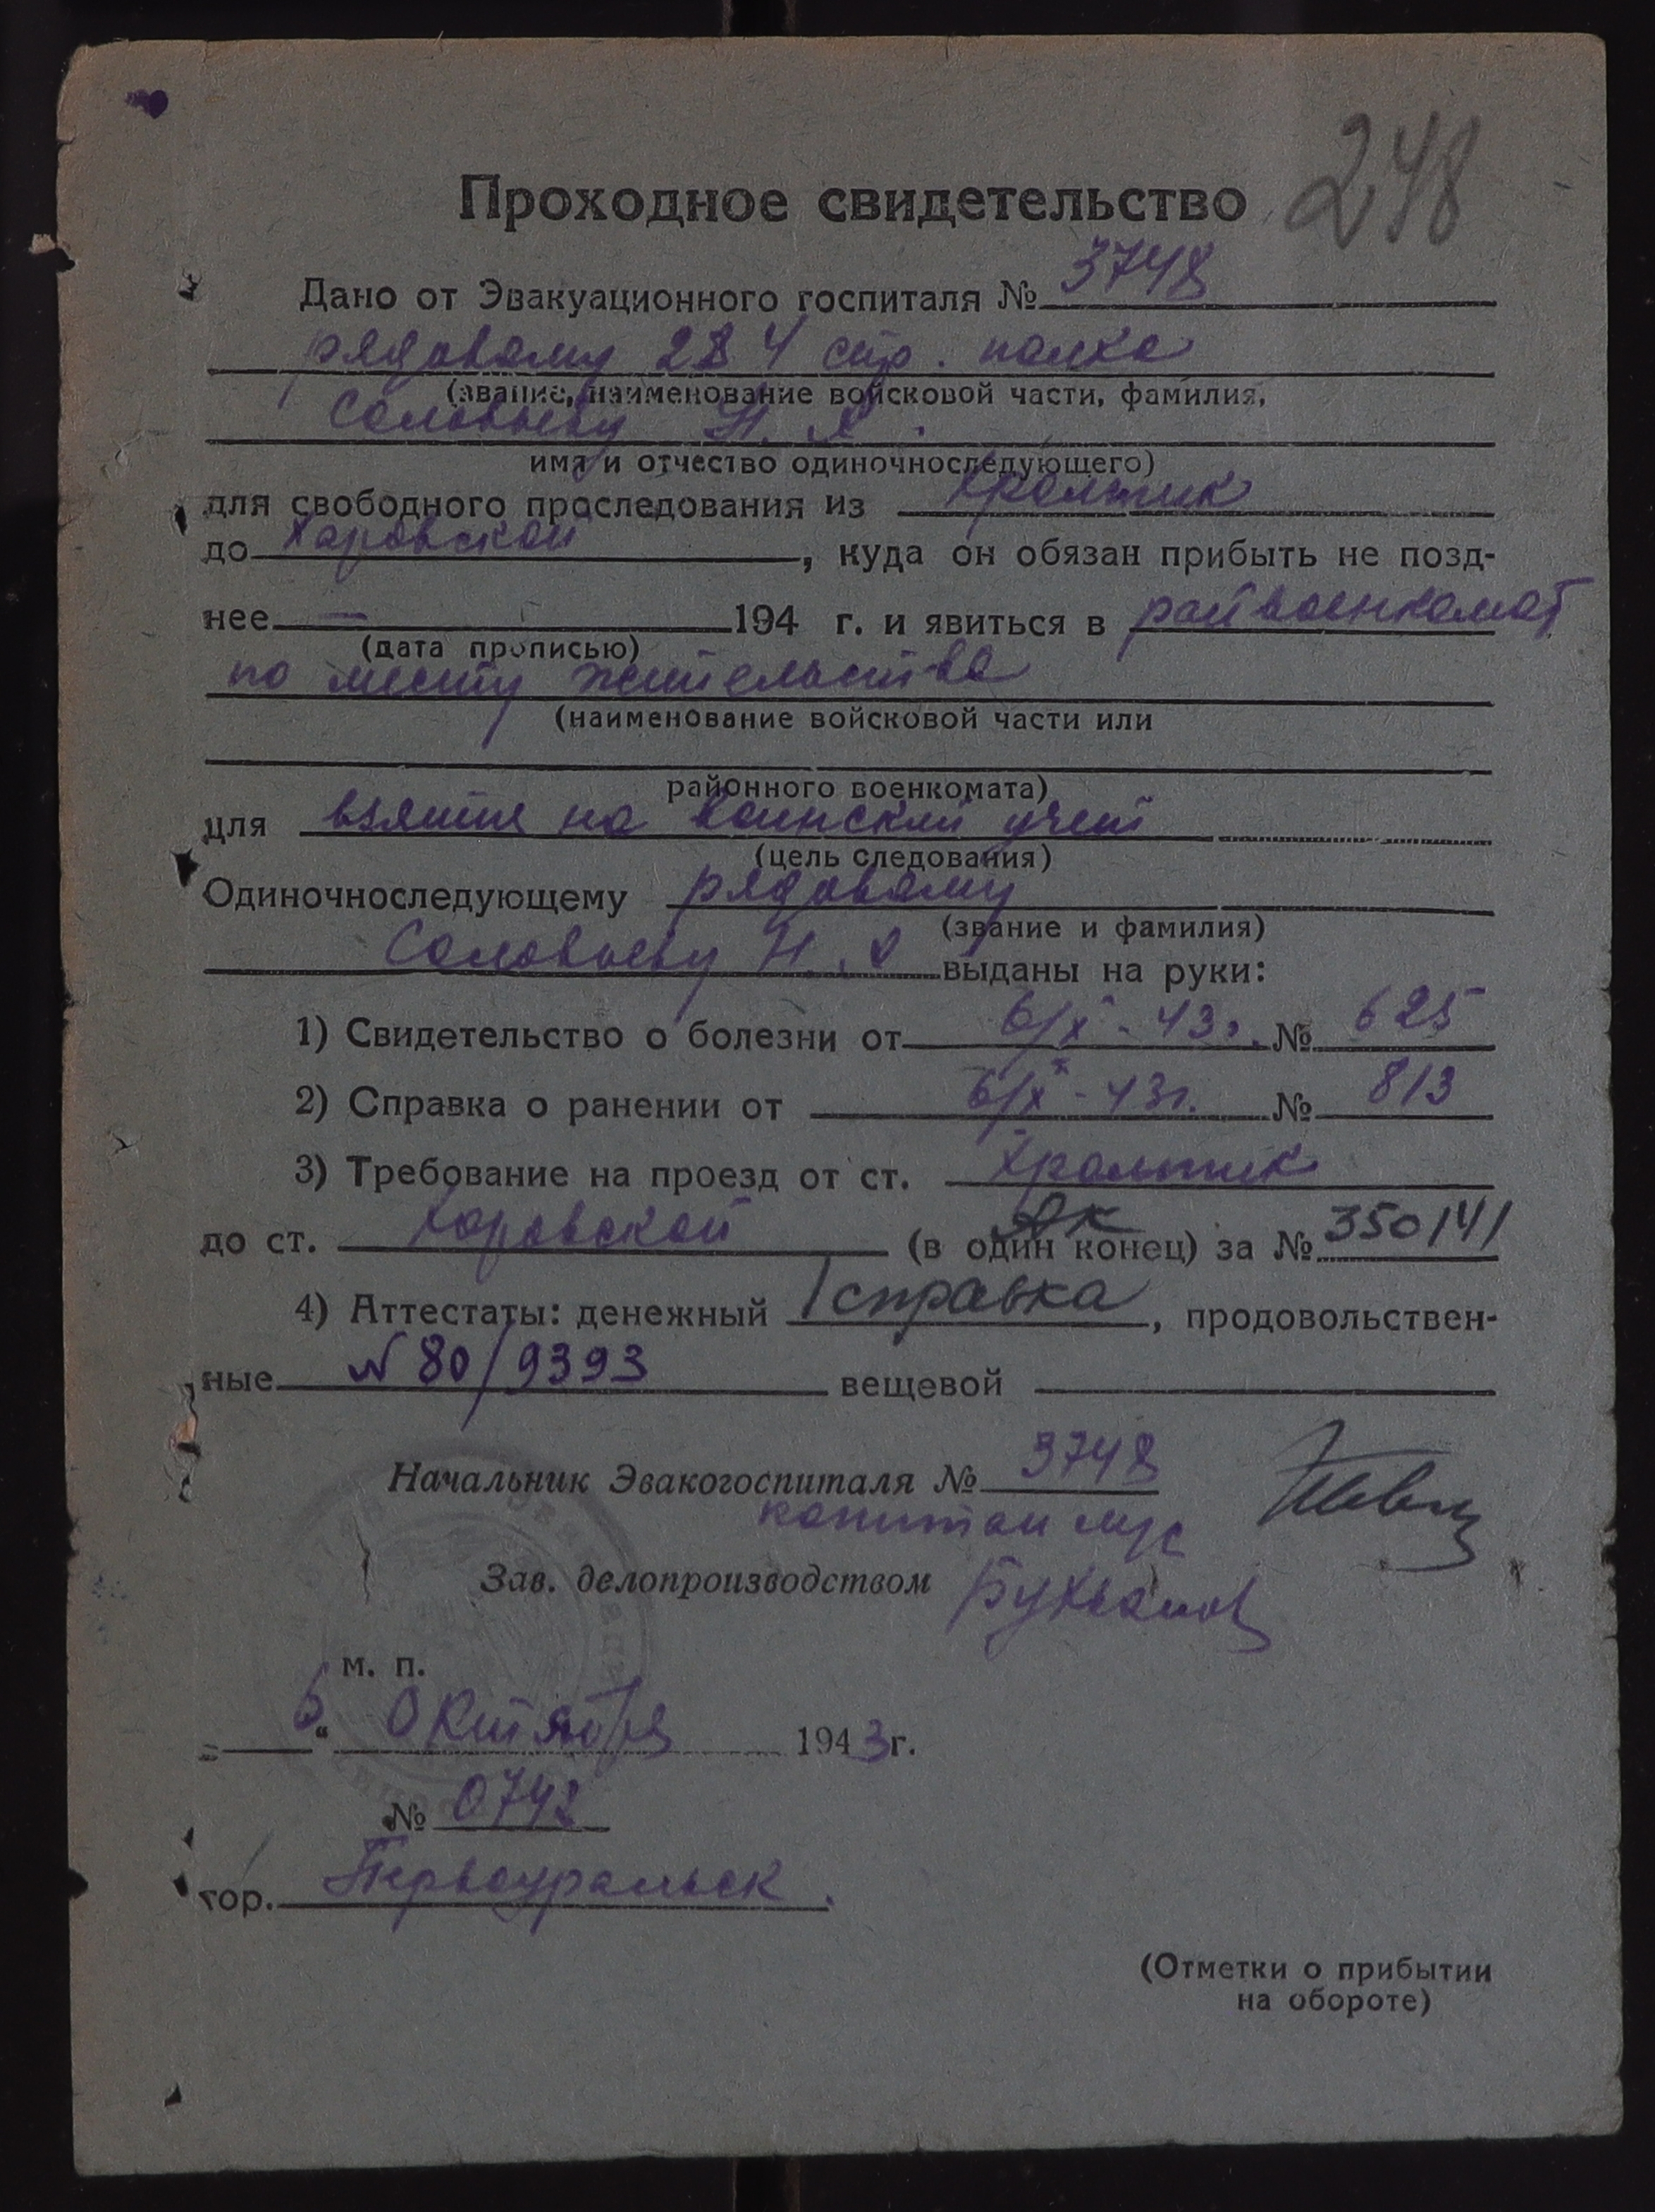 248
Проходное свидетельство
Дано от Эвакуационного госпиталя № 3748
рядовому 284 стр. полка
(звание, наименование войсковой части, фамилия,
Соловьеву Н.
имя и отчество одиночноследующего)
для свободного проследования из Хромпик
до Харовской, куда он обязан прибыть не позд-
нее — 194 г. и явиться в райвоенкомат
(дата прописью)
по месту жительства
(наименование войсковой части или
районного военкомата)
для взятия на воинский учет
(цель следования)
Одиночноследующему рядовому
(звание и фамилия)
Соловьеву Н. выданы на руки:
1) Свидетельство о болезни от 6/X - 43г. № 625
2) Справка о ранении от 6/X - 43г. № 813
3) Требование на проезд от ст. Хромпик
до ст. Харовской (в один конец) за № 350141
4) Аттестаты: денежный справка, продовольствен-
ные № 80/9393 вещевой
Начальник Эвакогоспиталя № 3748
капитан м/с
Зав. делопроизводством
м. п.
„6“ Октября 1943г.
№ 0742
гор. Первоуральск.
(Отметки о прибытии
на обороте)